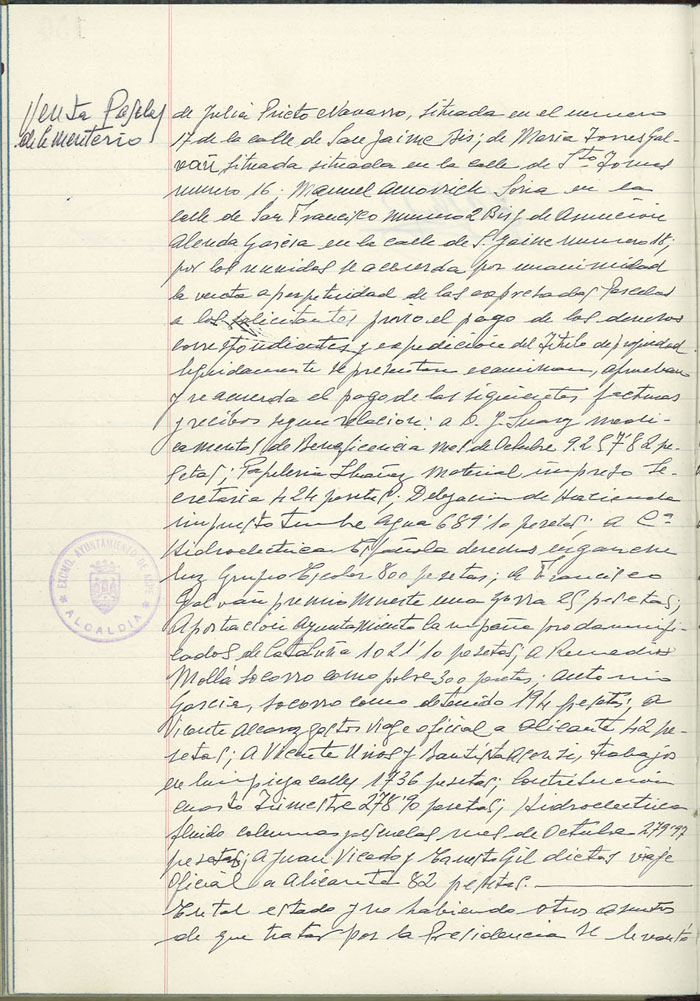 Venta Parcelas
de Cementerio
de Julia Prieto Navarro, situada en el numero
17 de la calle de San Jaime Bis; de Maria Torres Gal-
vañ situada situada en la calle de Sto Tomas
numero 16. Manuel Soria en la
calle de San Francisco numero 2 Bis y de Asunción
Alenda Garcia en la calle de S. Jaime numero 18;
por los reunidos se acuerda por unanimidad
la venta a perpetuidad de las expresadas Parcelas
a los solicitantes previo el pago de los derechos
correspondientes y expedición del Titulo de propiedad.
Seguidamente se presentan examinan, aprueban
y se acuerda el pago de las siguientes facturas
y recibos segun relacion: a D. J. Suary medi-
camentos de Beneficencia mes de Octubre 925'78 pe-
setas; Papeleria Ibañez material impreso Se-
cretaria 424 pesetas; Delegacion de Hacienda
impuesto agua 689'10 pesetas; a Cª
Hidroelectrica Española derechos enganche
luz Grupo Escolar 800 pesetas; a Francisco
Galvañ premio muerte una zorra 25 pesetas;
Aportacion Ayuntamiento campaña pro damnifi-
cados de Cataluña 1021'10 pesetas; a Remedios
Mollá socorro como pobre 300 pesetas; Antonio
Garcia, socorro como detenido 194 pesetas; a
Vicente Alcaraz gastos viaje oficial a Alicante 42 pe-
setas; a Vicente y Bautista trabajos
en limpieza calles 1736 pesetas; Contribución
cuarto trimestre 278'90 pesetas; Hidroelectrica
fluido columnas escuelas mes de Octubre 279'97
pesetas; a Juan Vicedo y Ernesto Gil dietas viaje
oficial a Alicante 82 pesetas.
En tal estado y no habiendo otros asuntos
de que tratar por la Presidencia se levantó
EXCMO. AYUNTAMIENTO DE ASPE
ALCALDIA